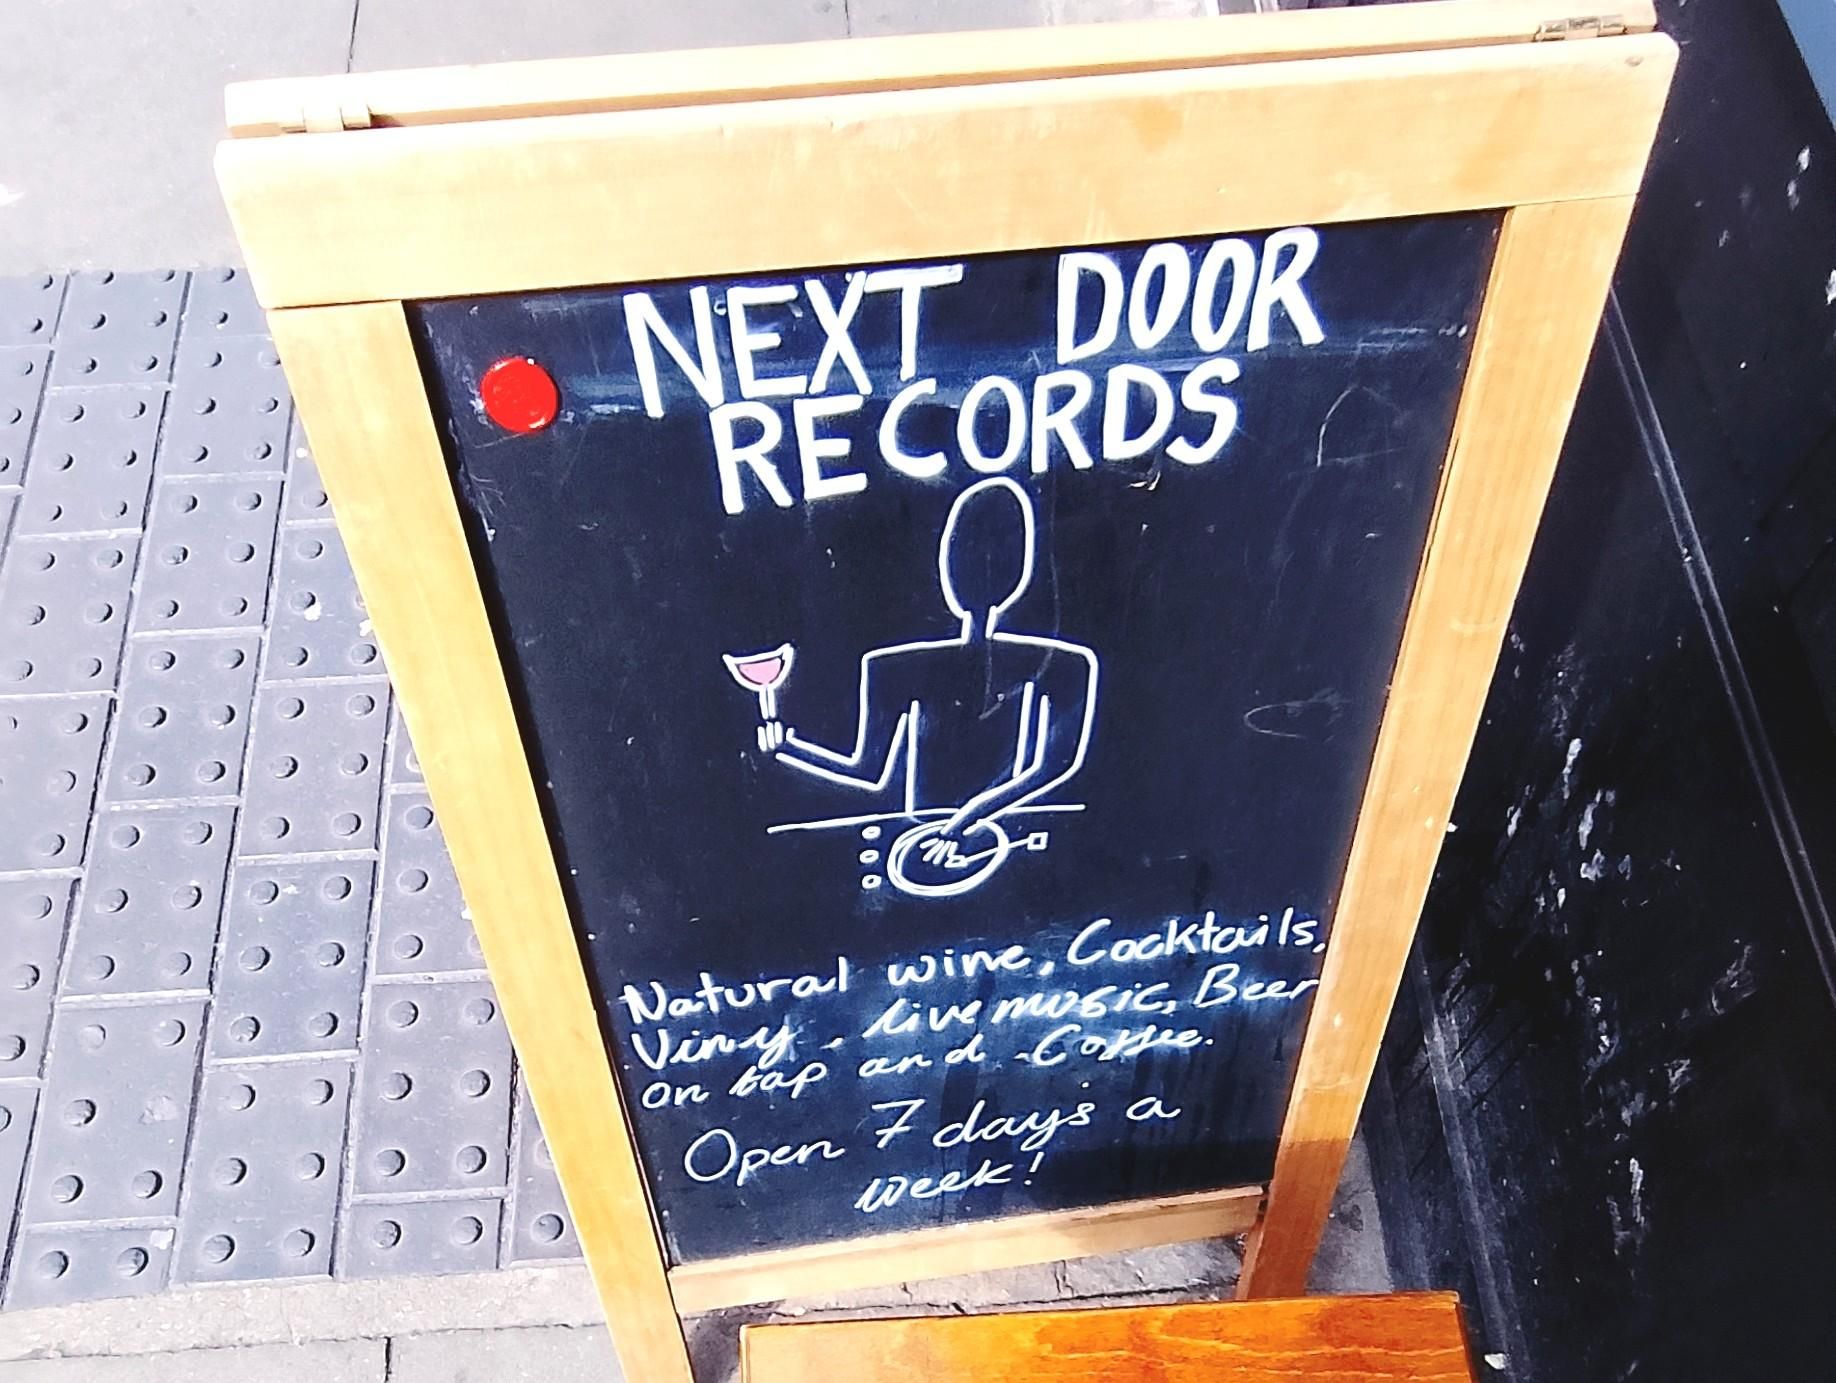 NEXT DOOR
RECORDS
Natural wine, Cocktails,
Viny. live music, Beer
on tap and Coffee.
Open 7 days a
week!